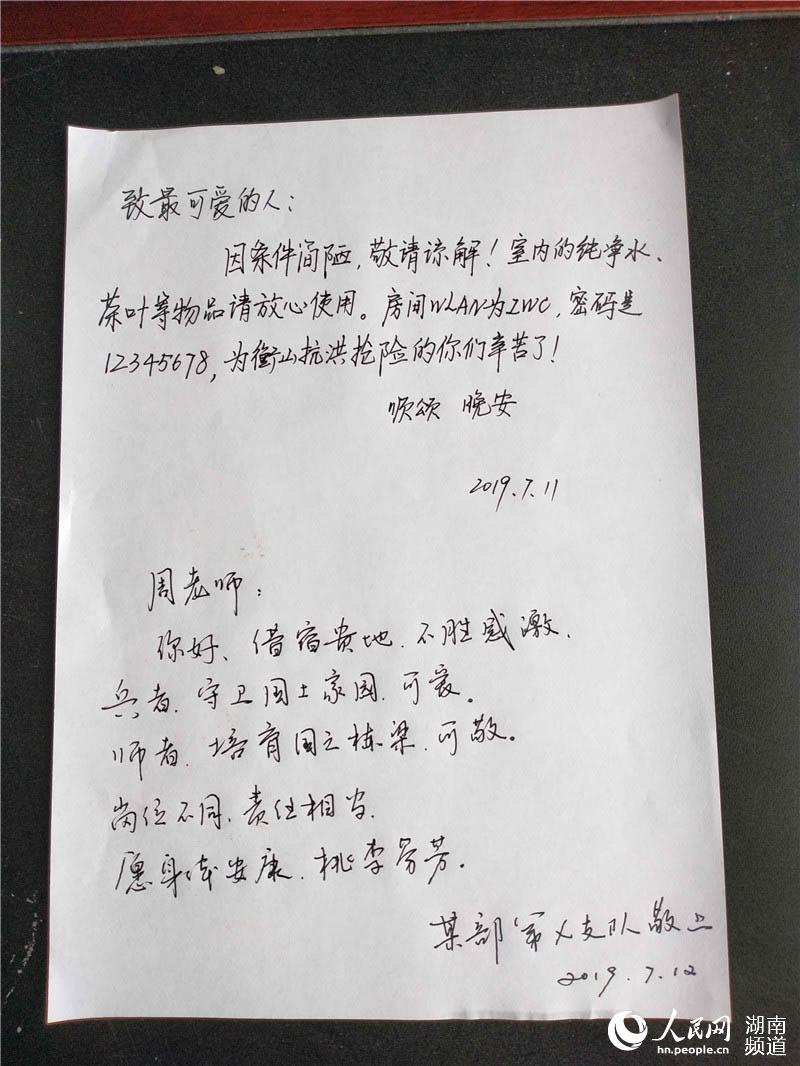 致最可爱的人：
因条件简陋，敬请谅解！室内的纯净水、
茶叶等物品请放心使用。房间WLAN为ZWC，密码是
12345678，为衡山抗洪抢险的你们辛苦了！
顺颂 晚安
2019.7.11
周老师：
你好、借宿贵地、不胜感激、
兵者、守卫国土家园、可爱。
师者、培育国之栋梁、可敬。
岗位不同、责任相当、
愿身体安康、桃李芬芳。
某部第X支队敬上
2019.7.12
人民网 湖南频道
hn.people.cn